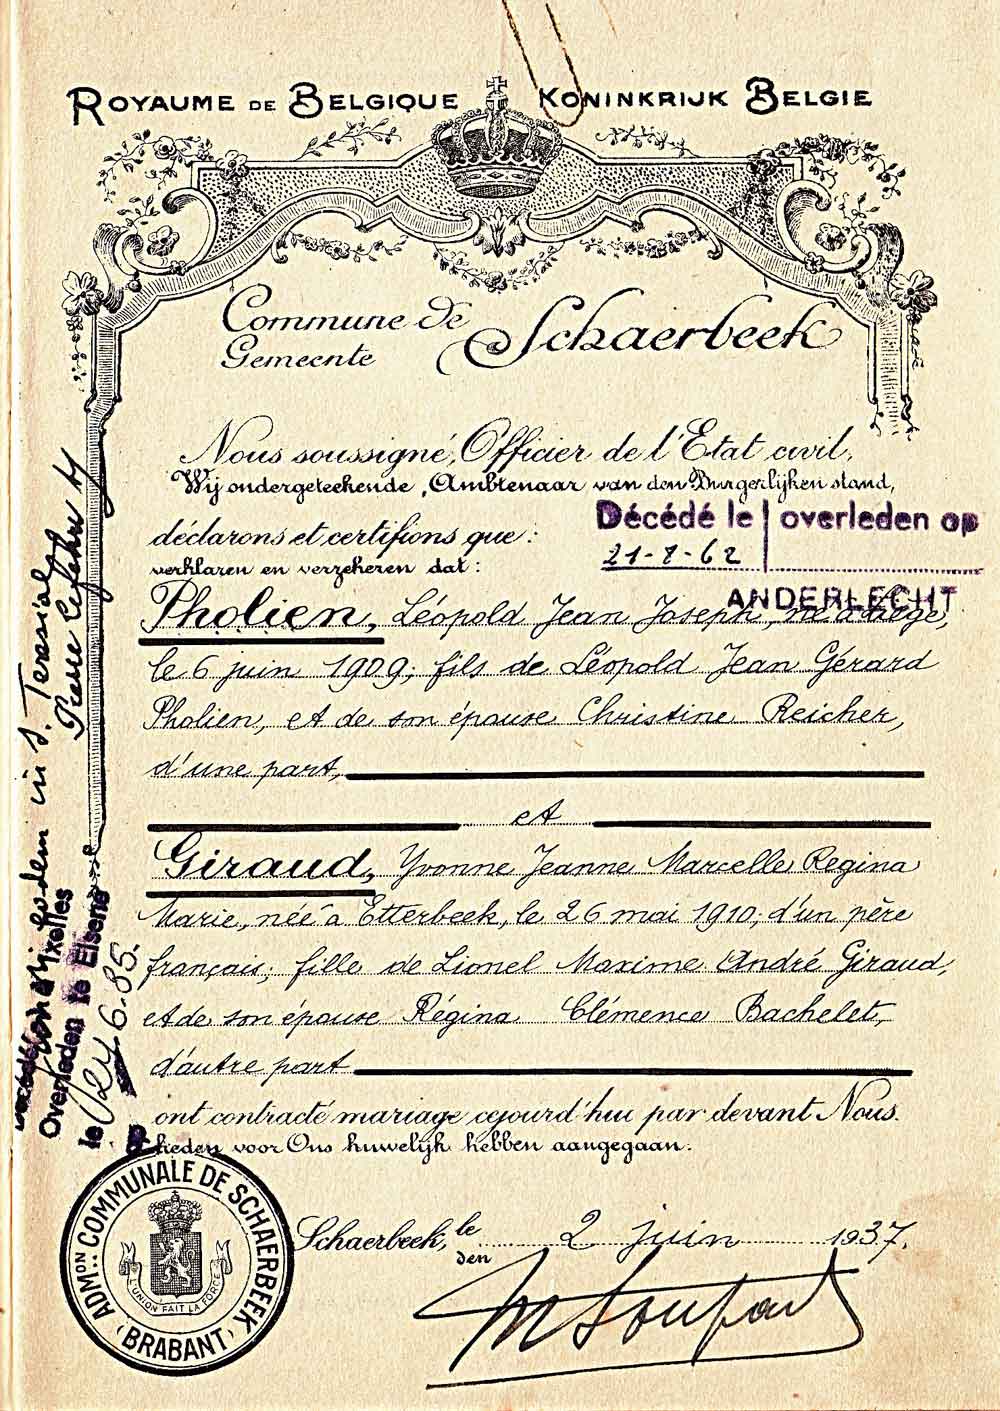 ROYAUME DE BELGIQUE KONINKRIJK BELGIE
Commune de Schaerbeek
Gemeente
Nous soussigné, Officier de l'Etat civil,
Wij ondergeteekende, Ambtenaar van den Burgerlijken stand,
déclarons et certifions que :
verklaren en verzekeren dat :
Décédé le overleden op
21-8-62
ANDERLECHT
Pholien, Léopold Jean Joseph, né à Liège,
le 6 juin 1909; fils de Léopold Jean Gérard
Pholien, et de son épouse Christine Reicher,
d'une part,
et
Giraud, Yvonne Jeanne Marcelle Regina
Marie, née à Etterbeek, le 26 mai 1910; d'un père
français; fille de Lionel Maxime André Giraud,
et de son épouse Régina Clémence Bachelet,
d'autre part
ont contracté mariage cejourd'hui par devant Nous.
heden voor Ons huwelijk hebben aangegaan.
Schaerbeek, le 2 juin 1937.
den
ADMON COMMUNALE DE SCHAERBEEK
(BRABANT)
L'UNION FAIT LA FORCE
Pierre
Ixelles
Overleden te Elsene
le 24.6.85.